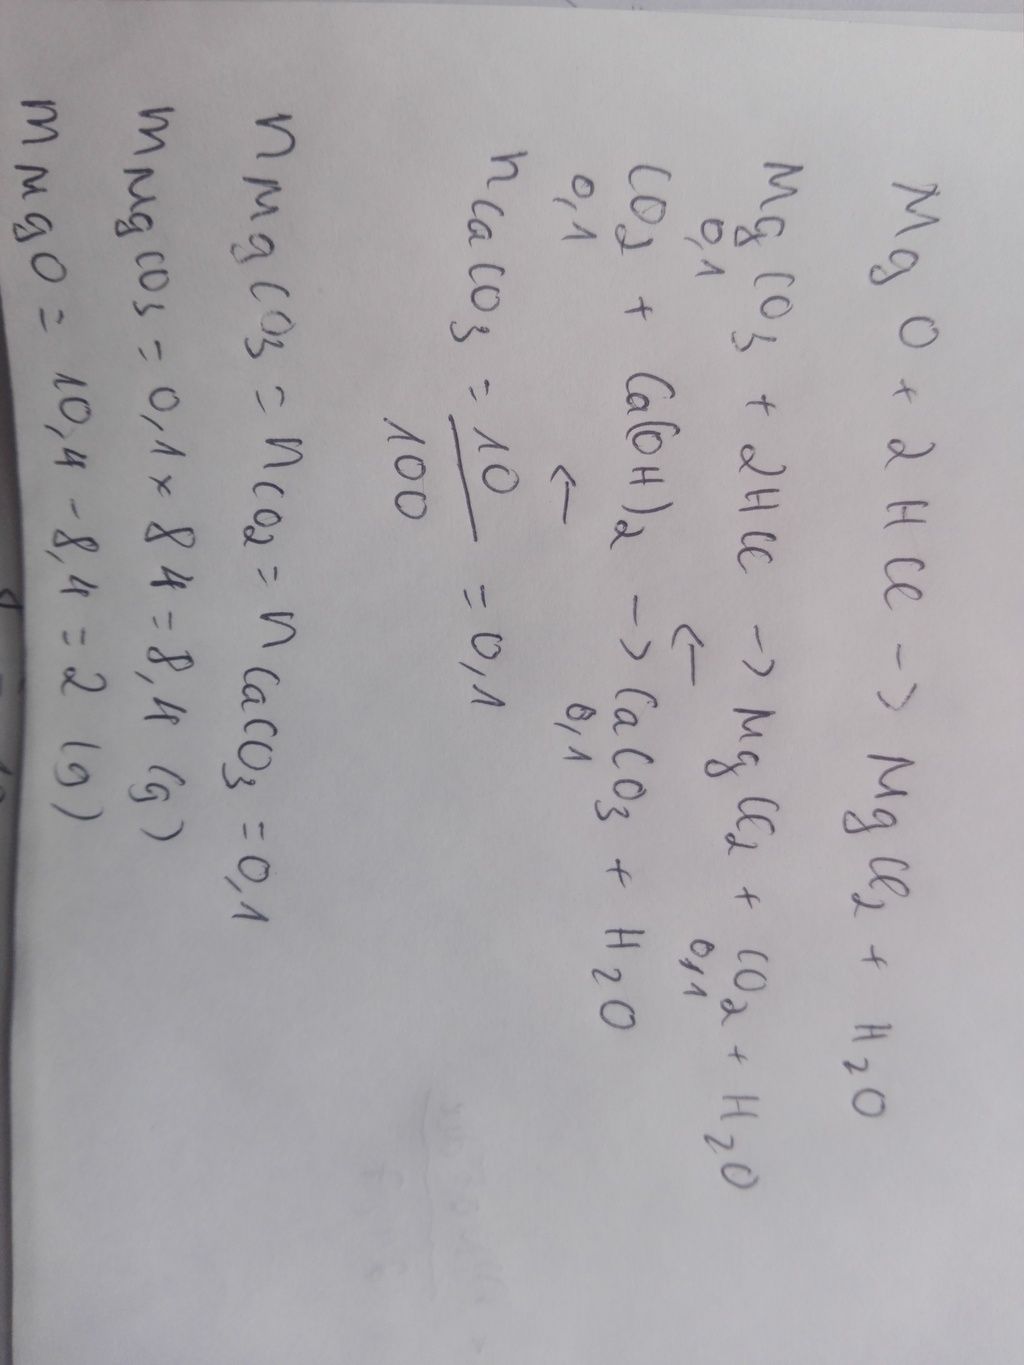 MgO + 2HCl -> MgCl2 + H2O
MgCO3 + 2HCl -> MgCl2 + CO2 + H2O
0,1 <- 0,1
CO2 + Ca(OH)2 -> CaCO3 + H2O
0,1 <- 0,1
nCaCO3 = 10/100 = 0,1
nMgCO3 = nCO2 = nCaCO3 = 0,1
mMgCO3 = 0,1 x 84 = 8,4 (g)
mMgO = 10,4 - 8,4 = 2 (g)